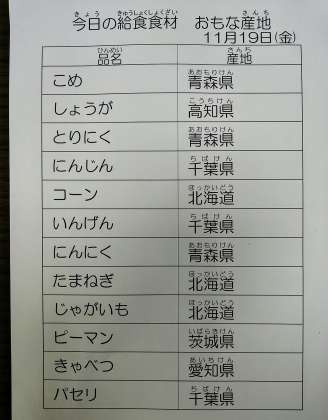 今日の給食食材 おもな産地
11月19日(金)
品名 産地
こめ 青森県
しょうが 高知県
とりにく 青森県
にんじん 千葉県
コーン 北海道
いんげん 千葉県
にんにく 青森県
たまねぎ 北海道
じゃがいも 北海道
ピーマン 茨城県
きゃべつ 愛知県
パセリ 千葉県